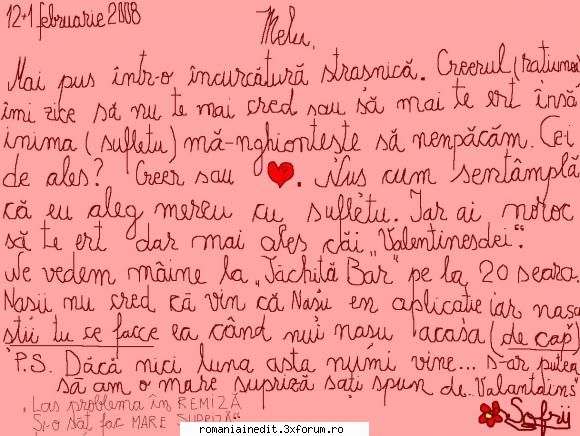 12+1 februarie 2008
Melu,
Mai pus într-o încurcătură strasnică. Creerul (ratiunea)
îmi zice să nu te mai cred sau să mai te ert însă
inima (sufletu) mă-nghionteste să nenpăcăm. Cei
de ales? Creer sau ❤. Nus cum sentâmplă
că eu aleg mereu cu sufletu. Iar ai noroc
să te ert dar mai ales căi „Valentinesdei".
Ne vedem mâine la „Jăchiță Bar" pe la 20 seara.
Nasii nu cred că vin că Nasu en aplicatie iar nasa
stii tu ce facce ea când nui nasu acasa (de cap)
P.S. Dăcă nici luna asta numi vine... s-ar putea
să am o mare supriză sați spun de „Valantains"
„Las problema în REMIZĂ
Și-o săț fac MARE SUPRIZĂ"
Sofrij
romaniainedit.3xforum.ro